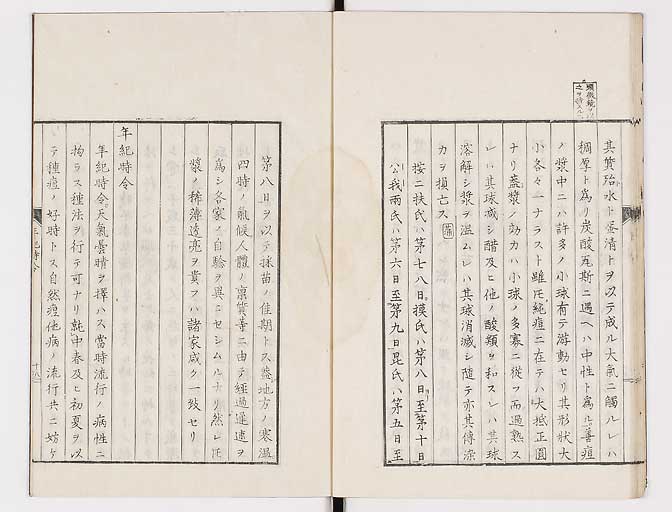 顕微鏡ヲ以
其質殆ト水ト蛋清トヲ以テ成ル大氣ニ觸ルレハ
稠厚ト為リ炭酸瓦斯ニ遇ヘハ中性ト為ル善痘
ノ漿中ニハ許多ノ小球有テ游動セリ其形状大
小各々一ナラスト雖圧純痘ニ在テハ大抵正圓
ナリ蓋漿ノ効力ハ小球ノ多寡ニ從フ而過熟ス
レハ其球减シ醋及ヒ他ノ酸類ヲ和スレハ其球
溶解シ漿ヲ温ムレハ其球消滅シ随テ亦其傳染
力ヲ損亡ス
按ニ扶氏ハ第七八日摸氏ハ第八日至第十日
公我兩氏ハ第六日至第九日毘氏ハ第五日至
第八日ヲ以テ採苗ノ佳期トス蓋地方ノ寒温
四時ノ氣候人體ノ禀質等ニ由テ經過遅速ヲ
為シ各家ノ自驗ヲ異ニセシムルナリ然レ圧
漿ノ稀薄透亮ヲ貴フハ諸家咸ク一致セリ
年紀時令
年紀時令天氣曇晴ヲ擇ハス當時流行ノ病性ニ
拘ラス種法ヲ行テ可ナリ就中春及ヒ初夏ヲ以
テ種痘ノ好時トス自然痘他病ノ流行共ニ妨ケ
年紀時令